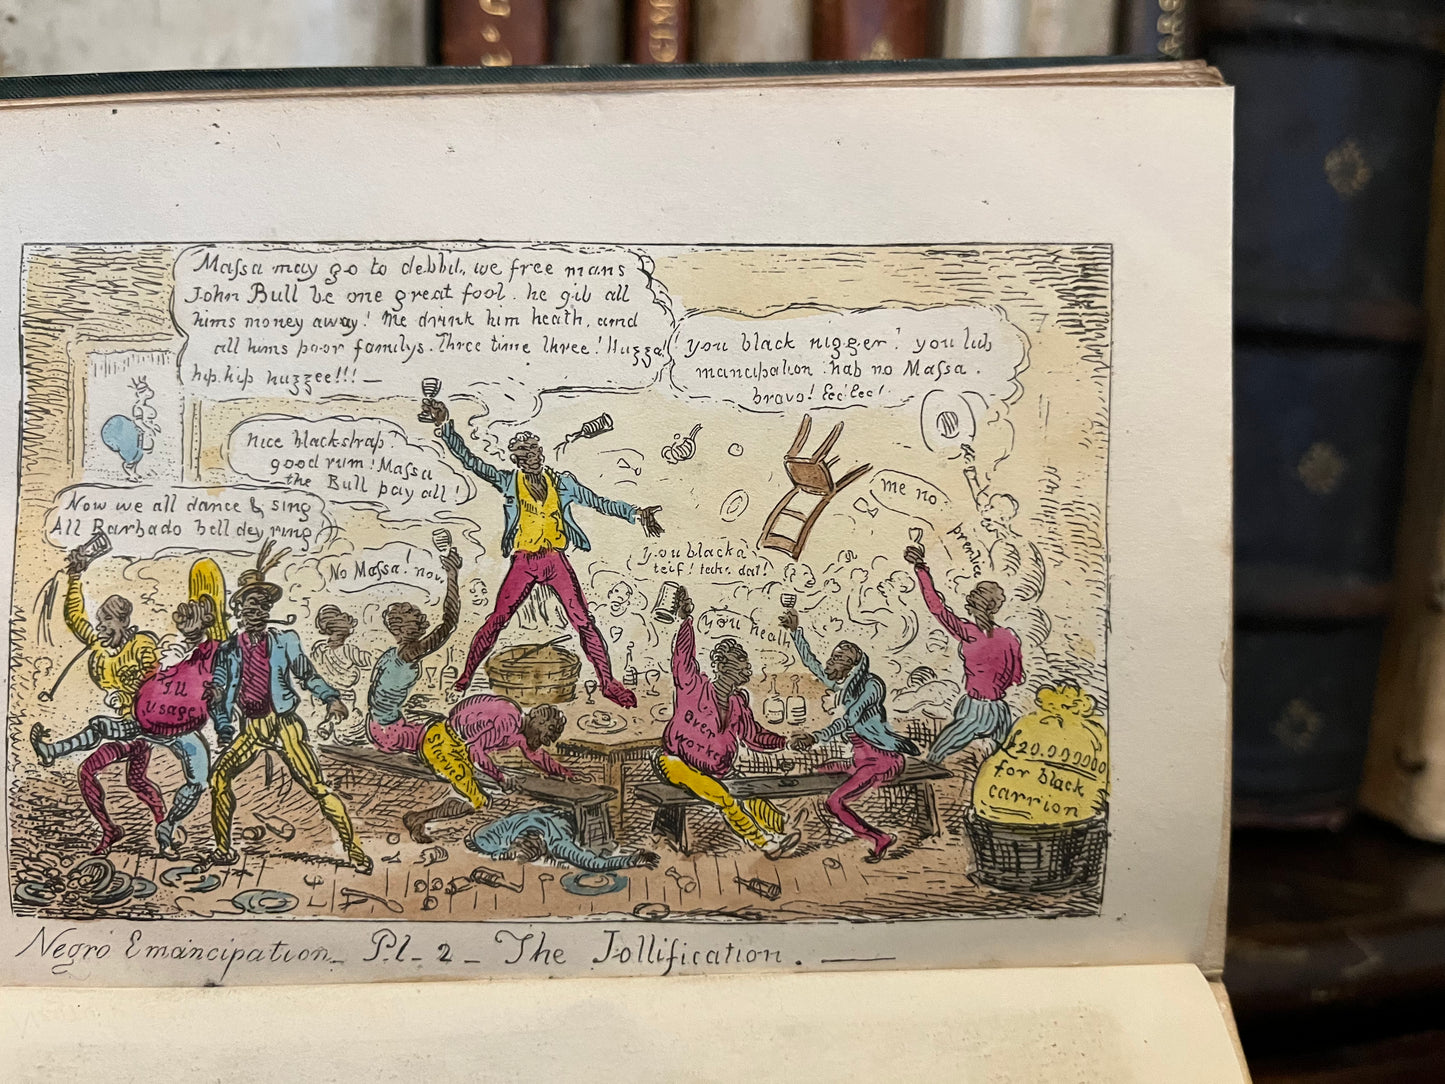 Maſsa may go to debbil, we free mans
John Bull be one great fool. he gib all
hims money away! me drink him heath, and
all hims poor familys. Three time three! Huzza!
hip. hip huzzee!!! —
you black nigger! you lub
mancipation. hab no Maſsa.
bravo! Eee' Eee!
Nice blackstrap!
good rum! Maſsa
the Bull pay all!
Now we all dance & sing
All Barbado bell dey ring!
No Maſsa! now
You blacka
teif! tak: dat!
me no
prentice
You heall
Ill
usage
Starved
Over
Worked
£20.000000
for black
carrion
Negro Emancipation_ Pl_ 2 _ The Jollification. —